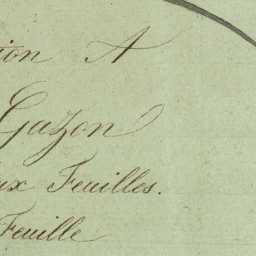 ion A
Gazon
ux Feuilles.
Feuille